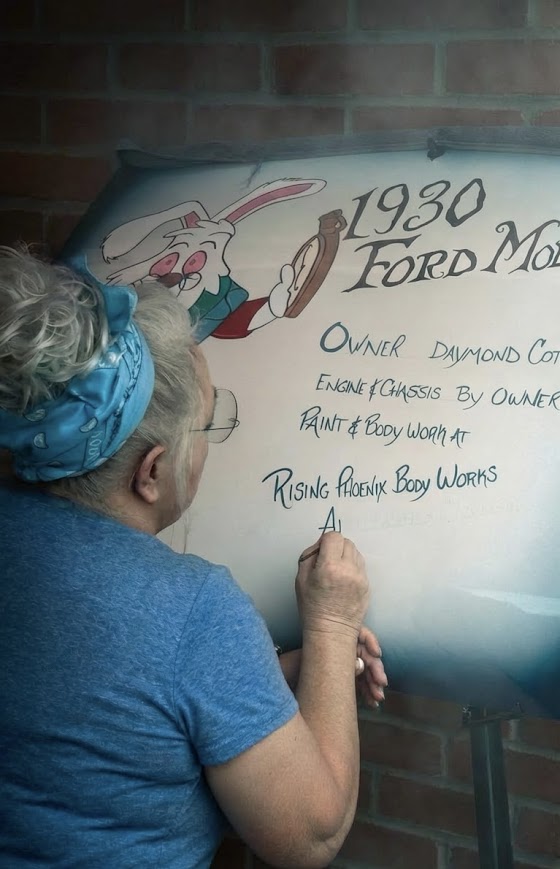 1930
FORD MOD
OWNER DAYMOND COT
ENGINE & CHASSIS BY OWNER
PAINT & BODY WORK AT
RISING PHOENIX BODY WORKS